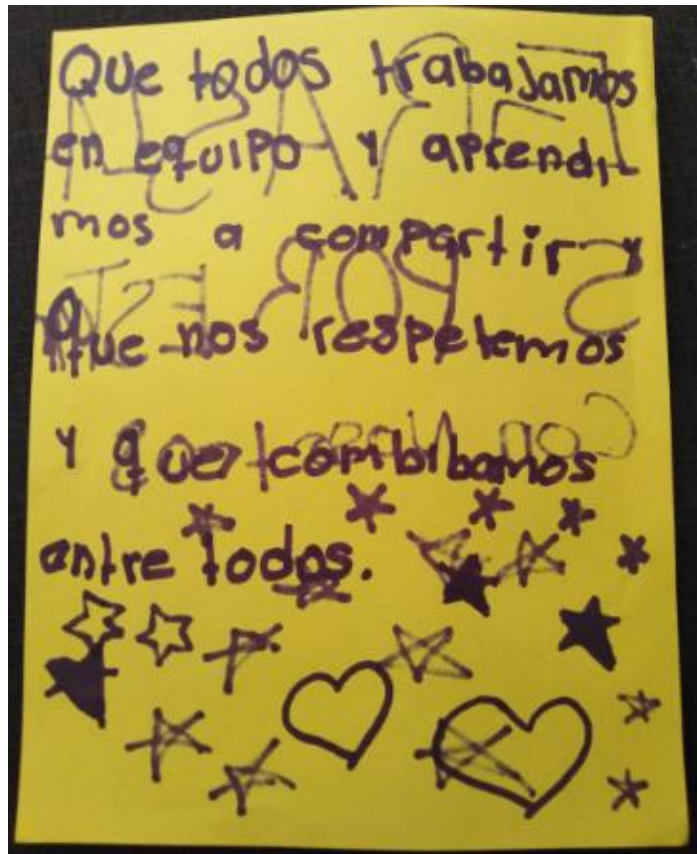 Que todos trabajamos
en equipo y aprendi-
mos a compartir y
que nos respetemos
y que combibamos
entre todos.